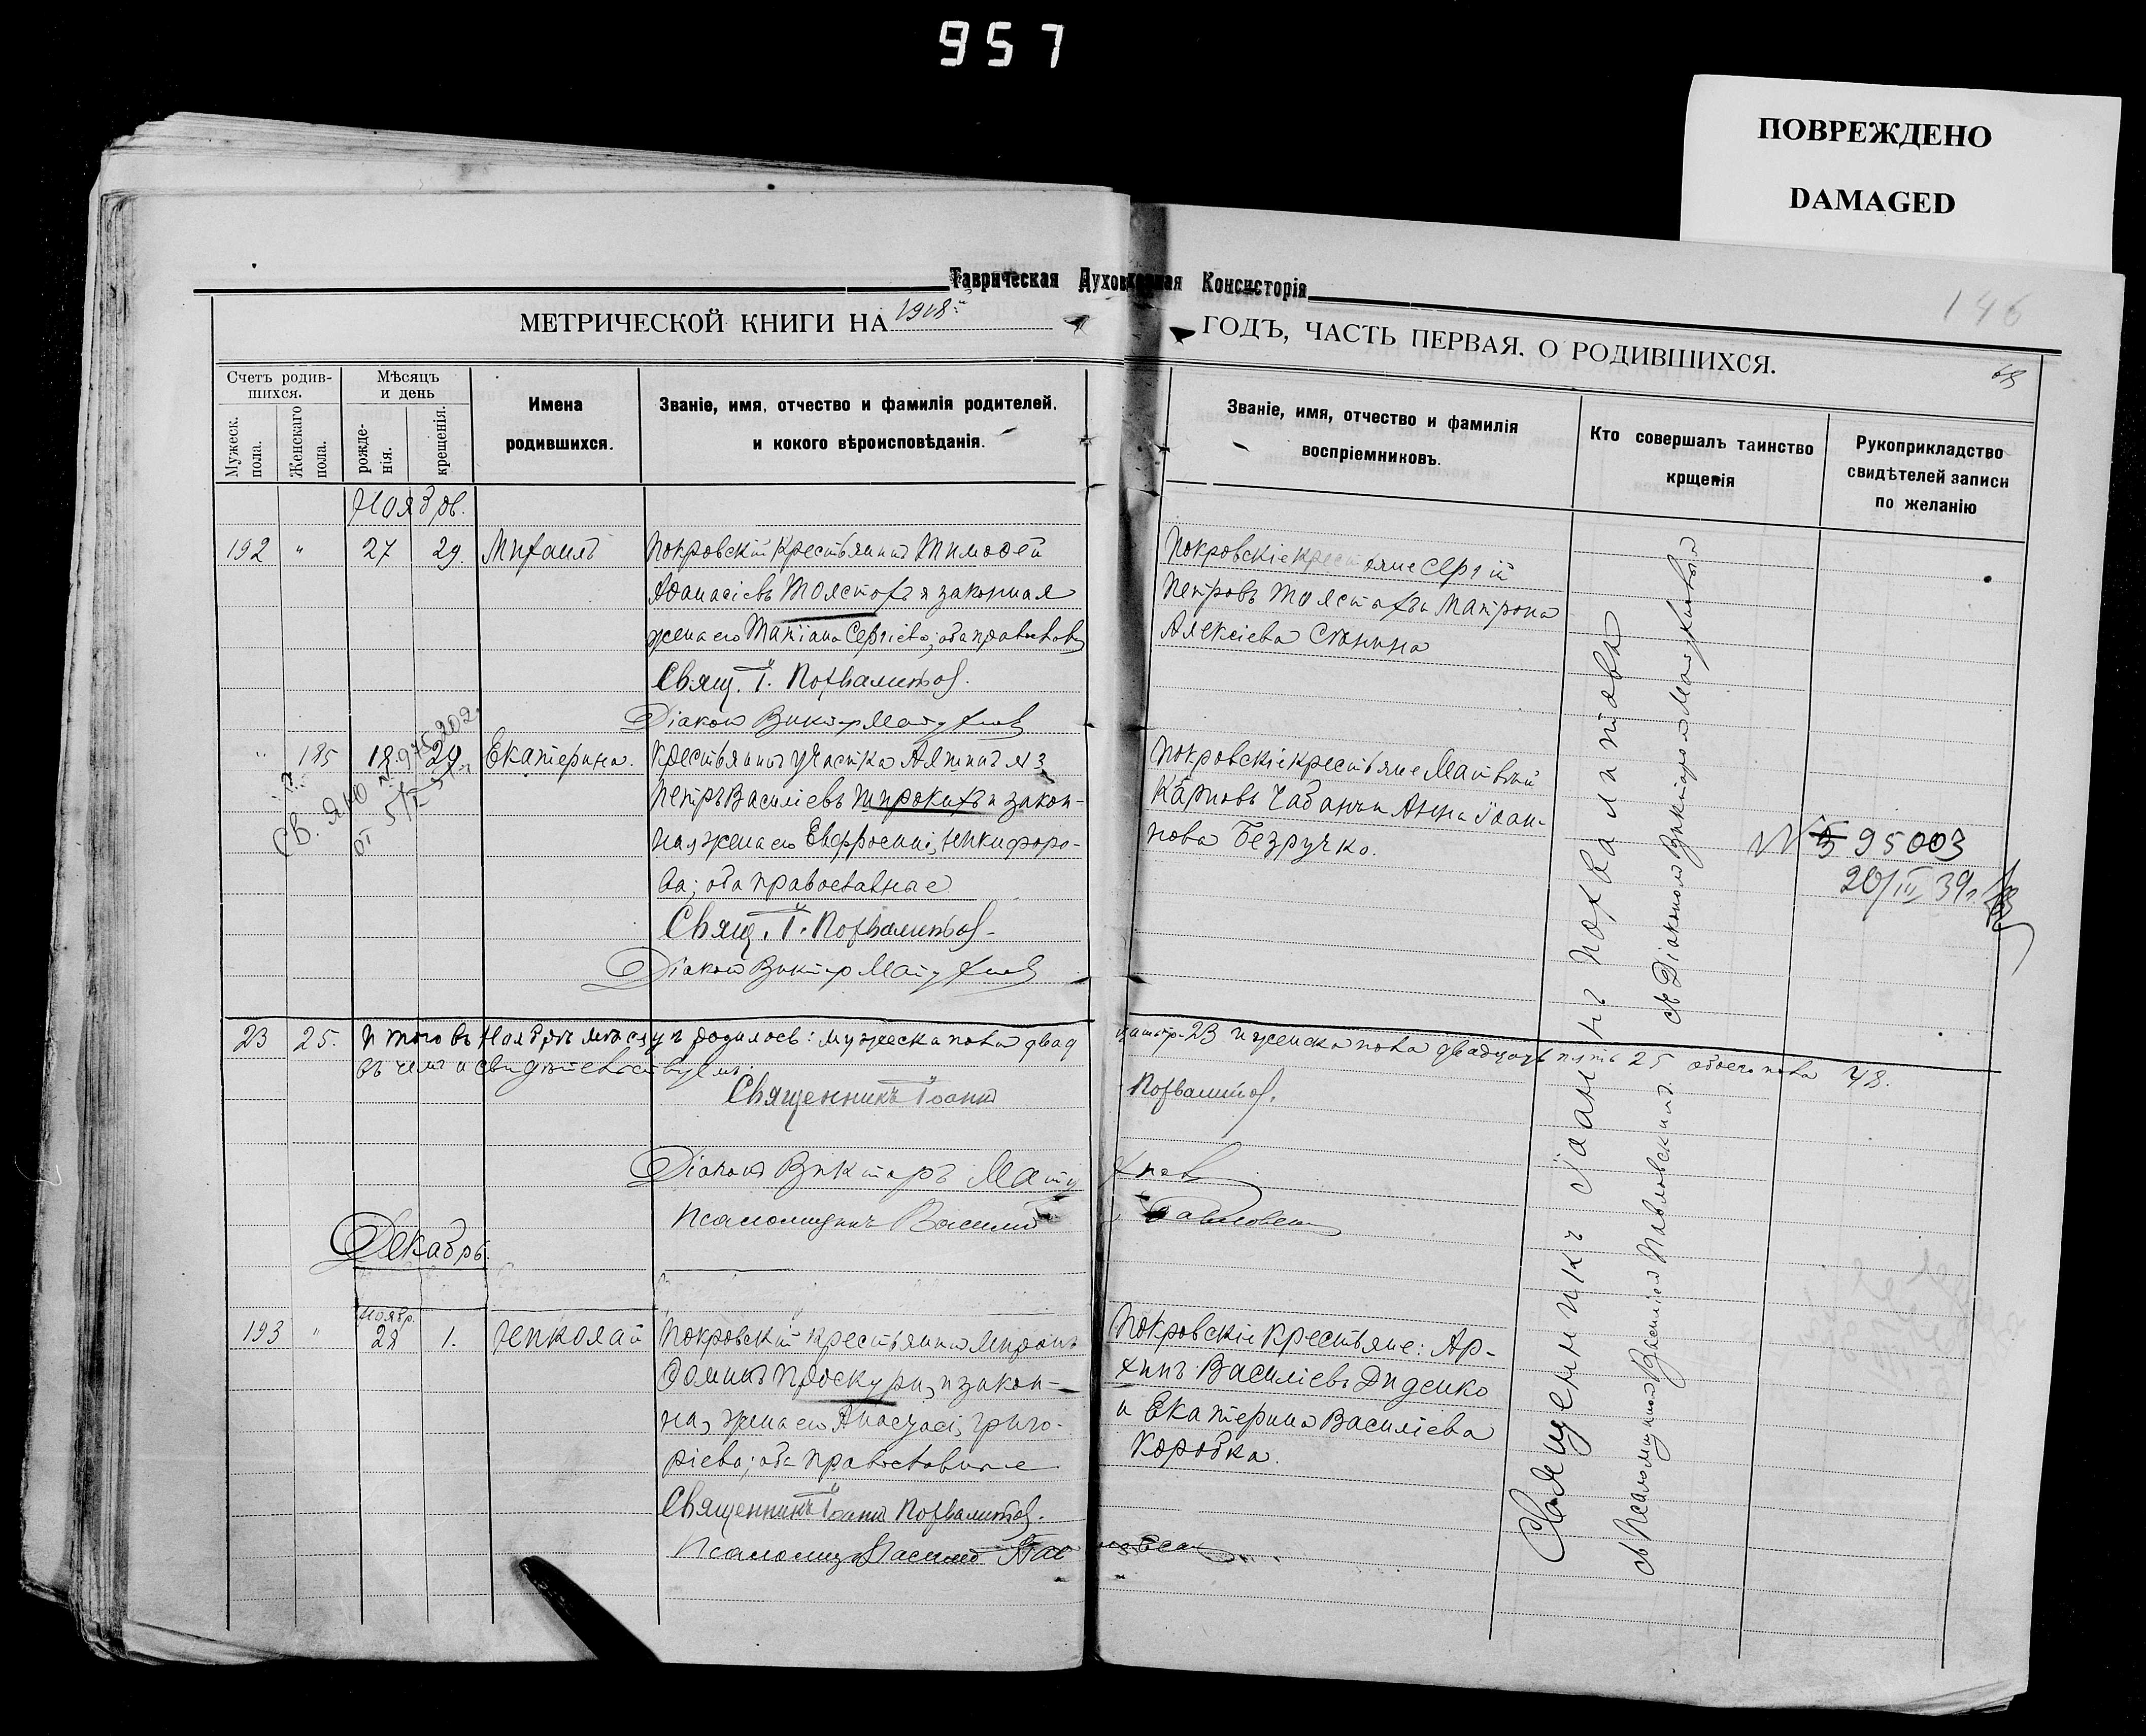 957
ПОВРЕЖДЕНО
DAMAGED
Таврическая Духовная Консисторія
146
МЕТРИЧЕСКОЙ КНИГИ НА 1918й
ГОДЪ, ЧАСТЬ ПЕРВАЯ. О РОДИВШИХСЯ.
68
Счетъ родив-
шихся.
Мужеск.
пола.
Женскаго
пола.
Мѣсяцъ
и день
рожде-
нія.
крещенія.
Имена
родившихся.
Званіе, имя, отчество и фамилія родителей,
и кокого вѣроисповѣданія.
Званіе, имя, отчество и фамилія
воспріемниковъ.
Кто совершалъ таинство
крщенія
Рукоприкладство
свидѣтелей записи
по желанію
Ноябрь.
192 " 27 29. Михаилъ
Покровскій крестьянинъ Тимофей
Афанасіевъ Толстохъ и законная
жена его Татіана Сергіева; оба православн
Свящ. І. Похвалитов.
Діаконъ Виктор Матухнов
Покровскіе крестьяне Сергій
Петровъ Толстохъ и Матрона
Алексіева Сюнина
" 185 18 29 Екатерина.
Крестьянинъ участка Алтшиъ №3
Петръ Василіевъ Широкихъ и закон-
ная жена его Евфросинія Никифоро-
ва; оба православные
Свящ. І. Похвалитов.
Діаконъ Виктор Матухнов
Покровскіе крестьяне Матвѣй
Карповъ Чабанъ и Анна Іоан-
нова Безручко.
Св. ЯЮ № 975202
от 5/I 51 г
N 95003
20/III 39 г.
23 25. Итого въ Ноябрѣ мѣсяцѣ родилось: мужеска пола двад
цать тр. 23 и женска пола двадцать пять 25 обоего пола 48.
въ чемъ и свидѣтельствуемъ:
Священникъ Іоаннъ Похвалитов.
Діаконъ Викторъ Матухнов
Псаломщикъ Василій Павловскій
Декабрь.
Ноябр.
193 " 28 1. Николай
Покровскій крестьянинъ Миронъ
Фоминъ Проскура и закон-
ная жена его Анастасія Григо-
ріева; оба православные
Священникъ Іоаннъ Похвалитов.
Псаломщ Василій Павловскій
Покровскіе крестьяне: Ар-
хипъ Василіевъ Диденко
и Екатерина Василіева
Коробка.
Священникъ Іоаннъ Похвалитовъ
съ Псаломщикомъ Василіемъ Павловскимъ. съ Діакономъ Викторомъ Матухновым